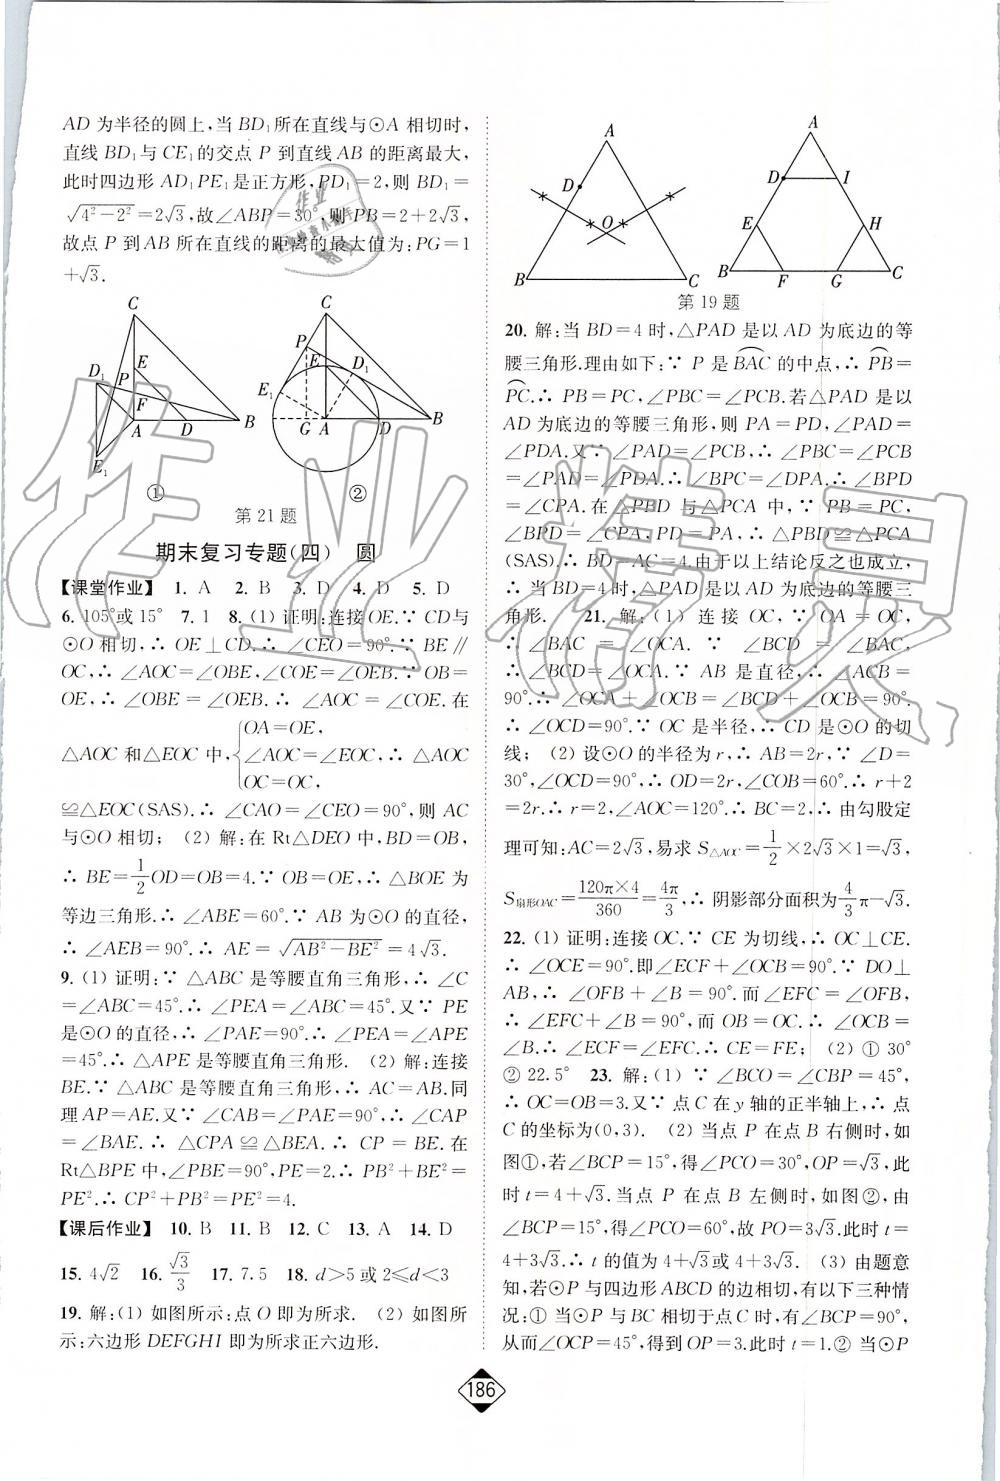 AD 为半径的圆上,当 BD₁ 所在直线与⊙A 相切时,
直线 BD₁ 与 CE₁ 的交点 P 到直线 AB 的距离最大,
此时四边形 AD₁PE₁ 是正方形,PD₁=2,则 BD₁=
√(4²-2²)=2√3,故∠ABP=30°,则 PB=2+2√3,
故点 P 到 AB 所在直线的距离的最大值为:PG=1
+√3.
C
D₁
E
P
F
A
D
B
E₁
①
C
P
E
D₁
E₁
G
A
D
B
②
第21题
期末复习专题(四) 圆
【课堂作业】 1. A 2. B 3. D 4. D 5. D
6. 105°或15° 7. 1 8. (1) 证明:连接OE.∵ CD与
⊙O 相切,∴ OE⊥CD.∴ ∠CEO=90°.∵ BE∥
OC,∴ ∠AOC=∠OBE,∠COE=∠OEB.∵ OB=
OE,∴ ∠OBE=∠OEB.∴ ∠AOC=∠COE.在
△AOC 和△EOC 中,{OA=OE,
∠AOC=∠EOC,∴ △AOC
OC=OC,
≌△EOC(SAS).∴ ∠CAO=∠CEO=90°,则 AC
与⊙O 相切; (2) 解:在 Rt△DEO 中,BD=OB,
∴ BE=1/2OD=OB=4.∵ OB=OE,∴ △BOE 为
等边三角形.∴ ∠ABE=60°.∵ AB 为⊙O 的直径,
∴ ∠AEB=90°.∴ AE=√(AB²-BE²)=4√3.
9. (1) 证明:∵ △ABC 是等腰直角三角形,∴ ∠C
=∠ABC=45°.∴ ∠PEA=∠ABC=45°.又∵ PE
是⊙O 的直径,∴ ∠PAE=90°.∴ ∠PEA=∠APE
=45°.∴ △APE 是等腰直角三角形. (2) 解:连接
BE.∵ △ABC 是等腰直角三角形,∴ AC=AB.同
理 AP=AE.又∵ ∠CAB=∠PAE=90°,∴ ∠CAP
=∠BAE.∴ △CPA≌△BEA.∴ CP=BE.在
Rt△BPE 中,∠PBE=90°,PE=2.∴ PB²+BE²=
PE².∴ CP²+PB²=PE²=4.
【课后作业】 10. B 11. B 12. C 13. A 14. D
15. 4√2 16. √3/3 17. 7.5 18. d>5或2≤d<3
19. 解:(1) 如图所示:点 O 即为所求. (2) 如图所
示:六边形 DEFGHI 即为所求正六边形.
A
D
O
B
C
A
D
I
E
H
B
F
G
C
第19题
20. 解:当 BD=4 时,△PAD 是以 AD 为底边的等
腰三角形.理由如下:∵ P 是⌒BAC 的中点,∴ ⌒PB=
⌒PC.∴ PB=PC,∠PBC=∠PCB.若△PAD 是以
AD 为底边的等腰三角形,则 PA=PD,∠PAD=
∠PDA.又∵ ∠PAD=∠PCB,∴ ∠PBC=∠PCB
=∠PAD=∠PDA.∴ ∠BPC=∠DPA.∴ ∠BPD
=∠CPA.在△PBD 与△PCA 中,∵ PB=PC,
∠BPD=∠CPA,PD=PA,∴ △PBD≌△PCA
(SAS).∴ BD=AC=4.由于以上结论反之也成立,
∴ 当 BD=4 时,△PAD 是以 AD 为底边的等腰三
角形. 21. 解:(1) 连接 OC,∵ OA=OC,
∴ ∠BAC=∠OCA.∵ ∠BCD=∠BAC,
∴ ∠BCD=∠OCA.∵ AB 是直径,∴ ∠ACB=
90°.∴ ∠OCA+∠OCB=∠BCD+∠OCB=90°.
∴ ∠OCD=90°.∵ OC 是半径,∴ CD 是⊙O 的切
线; (2) 设⊙O 的半径为 r,∴ AB=2r,∵ ∠D=
30°,∠OCD=90°,∴ OD=2r,∠COB=60°.∴ r+2
=2r.∴ r=2,∠AOC=120°.∴ BC=2,∴ 由勾股定
理可知:AC=2√3,易求 S△AOC=1/2×2√3×1=√3,
S扇形OAC=120π×4/360=4π/3,∴ 阴影部分面积为4/3π-√3.
22. (1) 证明:连接 OC.∵ CE 为切线,∴ OC⊥CE.
∴ ∠OCE=90°.即∠ECF+∠OCF=90°.∵ DO⊥
AB,∴ ∠OFB+∠B=90°.而∠EFC=∠OFB,
∴ ∠EFC+∠B=90°,而 OB=OC.∴ ∠OCB=
∠B.∴ ∠ECF=∠EFC.∴ CE=FE; (2) ① 30°
② 22.5° 23. 解:(1) ∵ ∠BCO=∠CBP=45°,
∴ OC=OB=3.又∵ 点 C 在 y 轴的正半轴上,∴ 点
C 的坐标为(0,3). (2) 当点 P 在点 B 右侧时,如
图①,若∠BCP=15°,得∠PCO=30°,OP=√3,此
时 t=4+√3.当点 P 在点 B 左侧时,如图②,由
∠BCP=15°,得∠PCO=60°,故 PO=3√3.此时 t=
4+3√3.∴ t 的值为 4+√3或 4+3√3. (3) 由题意
知,若⊙P 与四边形 ABCD 的边相切,有以下三种情
况:① 当⊙P 与 BC 相切于点 C 时,有∠BCP=90°,
从而∠OCP=45°,得到 OP=3.此时 t=1.② 当⊙P
186